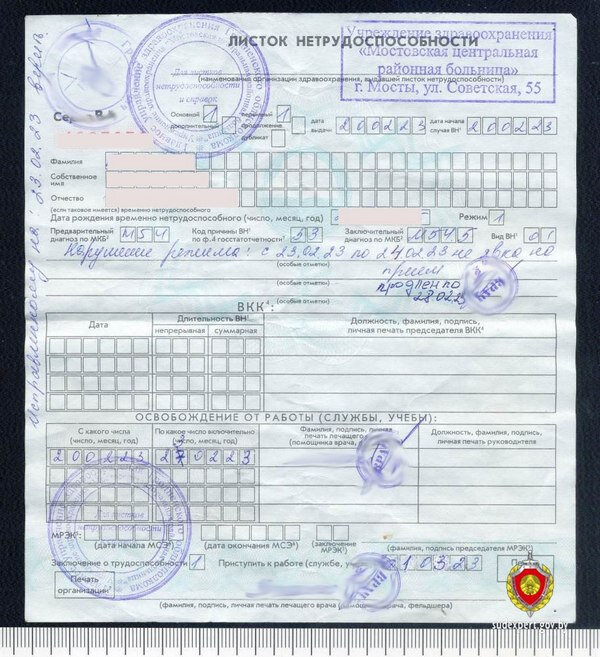 ЛИСТОК НЕТРУДОСПОСОБНОСТИ
Учреждение здравоохранения
«Мостовская центральная
районная больница»
г. Мосты, ул. Советская, 55
(наименование организации здравоохранения, выдавшей листок нетрудоспособности)
Для листков
нетрудоспособности
и справок
Основной 1
дополнительный
Первичный 1
продолжение
дубликат
дата выдачи 200223
дата начала случая ВН¹ 200223
Фамилия
Собственное имя
Отчество
(если таковое имеется) временно нетрудоспособного
Дата рождения временно нетрудоспособного (число, месяц, год)
Режим 1
Предварительный диагноз по МКБ² М54
Код причины ВН¹ по ф.4 госстатотчетности³ 33
Заключительный диагноз по МКБ² М545
Вид ВН¹ 01
Нарушение режима: с 23.02.23 по 24.02.23 не явка на
(особые отметки)
прием
(особые отметки)
продлен по
28.02.23
(особые отметки)
Исправленному на: 23.02.23 верить
ВКК⁴:
Дата
Длительность ВН¹
непрерывная
суммарная
Должность, фамилия, подпись,
личная печать председателя ВКК⁴
ОСВОБОЖДЕНИЕ ОТ РАБОТЫ (СЛУЖБЫ, УЧЕБЫ):
С какого числа
(число, месяц, год)
По какое число включительно
(число, месяц, год)
Фамилия, подпись, личная
печать лечащего
(помощника врача,
Должность, фамилия, подпись,
личная печать руководителя
200223
0223
ВРАЧ
Для листков
нетрудоспособности
МРЭК⁵:
(дата начала МСЭ⁶)
(дата окончания МСЭ⁶)
(заключение МРЭК⁵)
(фамилия, подпись председателя МРЭК⁵)
Заключение о трудоспособности 1
Приступить к работе (службе,
010323
Печать
организации
ВРАЧ
(фамилия, подпись, личная печать лечащего врача (помощника врача, фельдшера)
sudexpert.gov.by